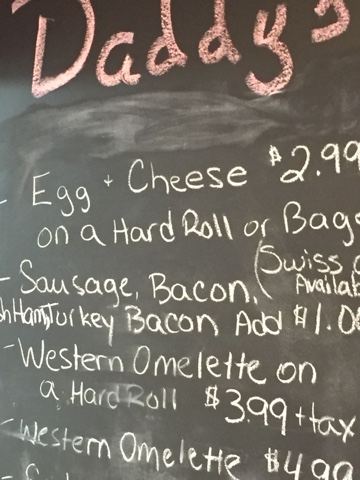 Daddy's
- Egg + Cheese $2.99
on a Hard Roll or Bag
(Swiss
- Sausage, Bacon, Availab
Ham, Turkey Bacon Add $1.0
- Western Omelette on
a Hard Roll $3.99 + tax
- Western Omelette $4.99